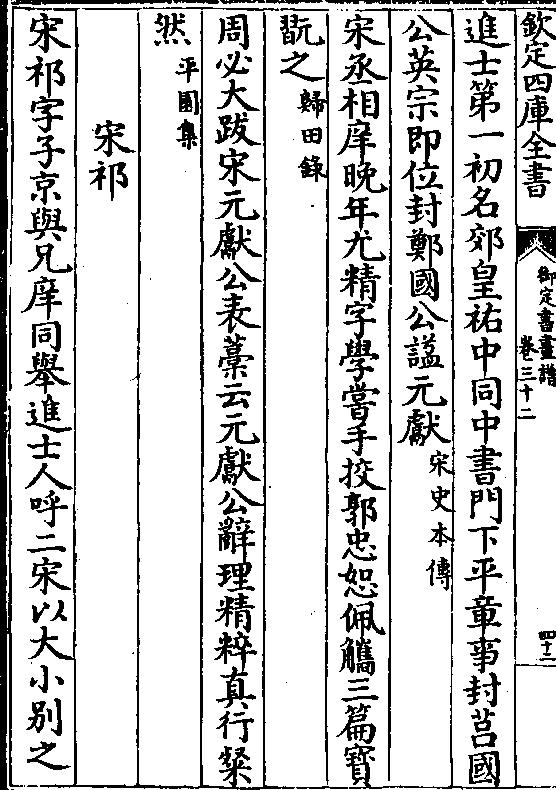 欽定四庫全書
御定書畫譜
卷三十二
四十二
進士第一初名郊皇祐中同中書門下平章事封莒國
公英宗即位封鄭國公諡元獻宋史本傳
宋丞相庠晚年尤精字學嘗手挍郭忠恕佩觿三篇寶
翫之歸田錄
周必大跋宋元獻公表藁云元獻公辭理精粹真行粲
然平園集
宋祁
宋祁字子京與兄庠同舉進士人呼二宋以大小别之